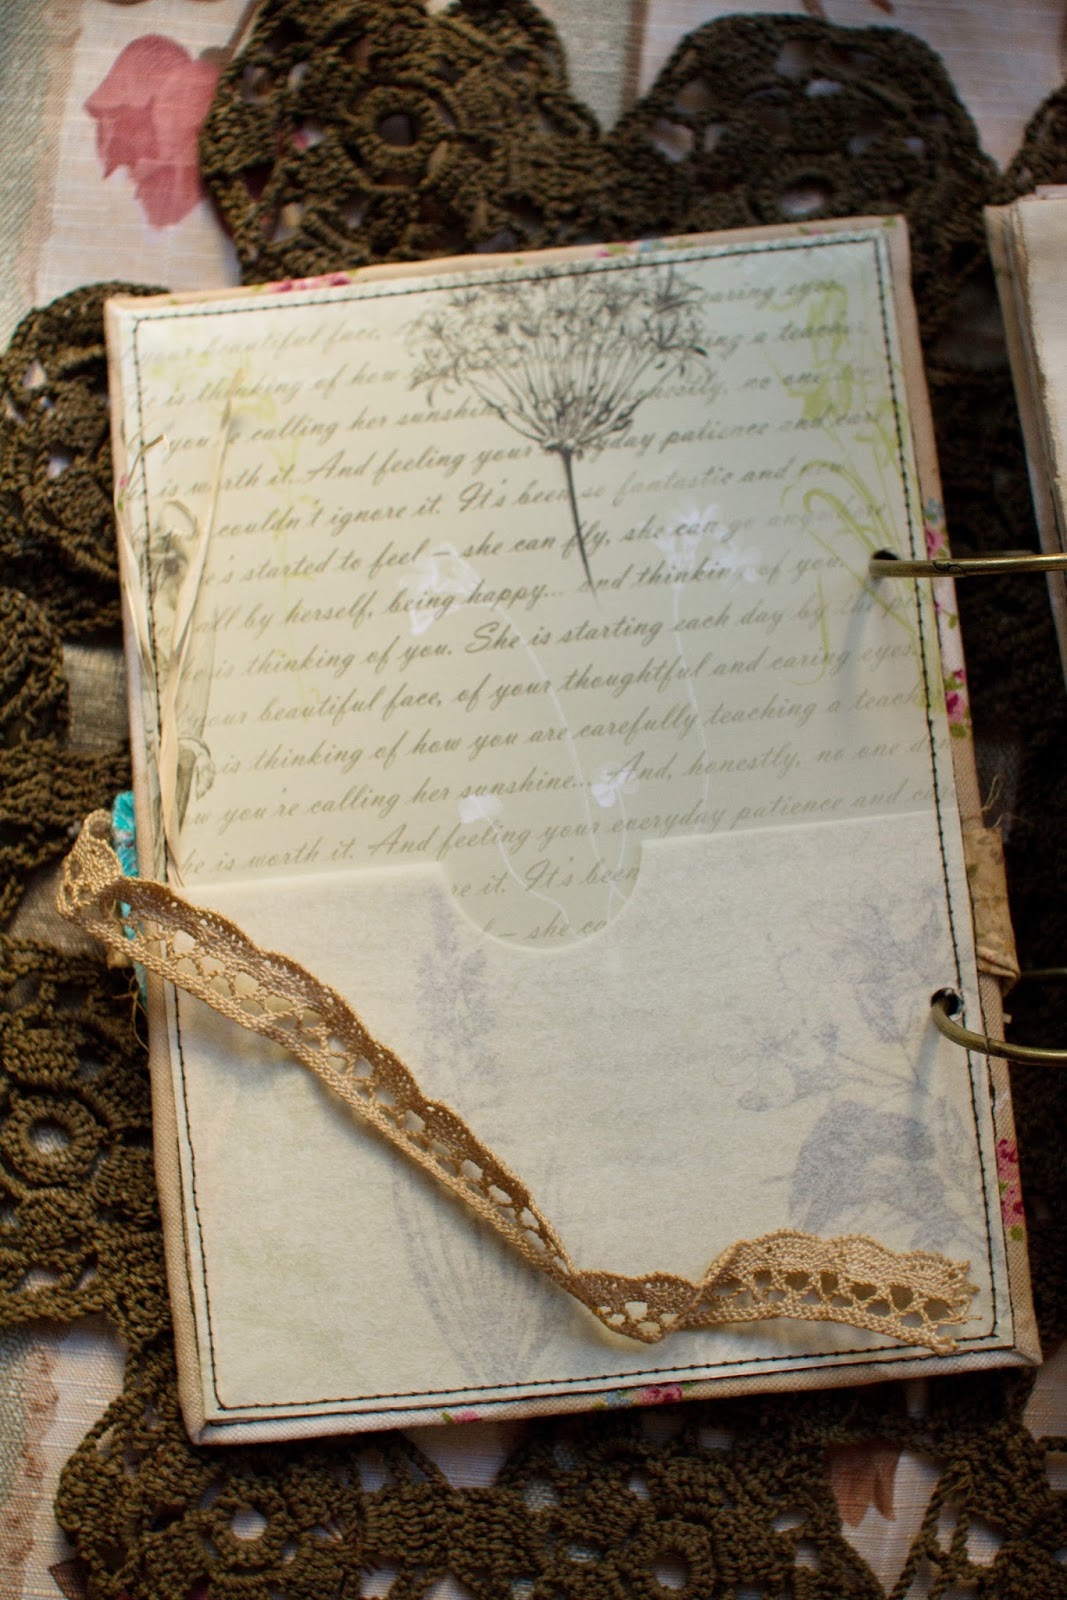 your beautiful face, caring eyes.
is thinking of how a teacher,
you're calling her sunshine no one
is worth it. And feeling your everyday patience and care
couldn't ignore it. It's been so fantastic and new
she's started to feel — she can fly, she can go anywhere
all by herself, being happy... and thinking of you.
he is thinking of you. She is starting each day by the
your beautiful face, of your thoughtful and caring eyes.
is thinking of how you are carefully teaching a teach
how you're calling her sunshine... And, honestly, no one
he is worth it. And feeling your everyday patience and
re it. It's been
l — she ca